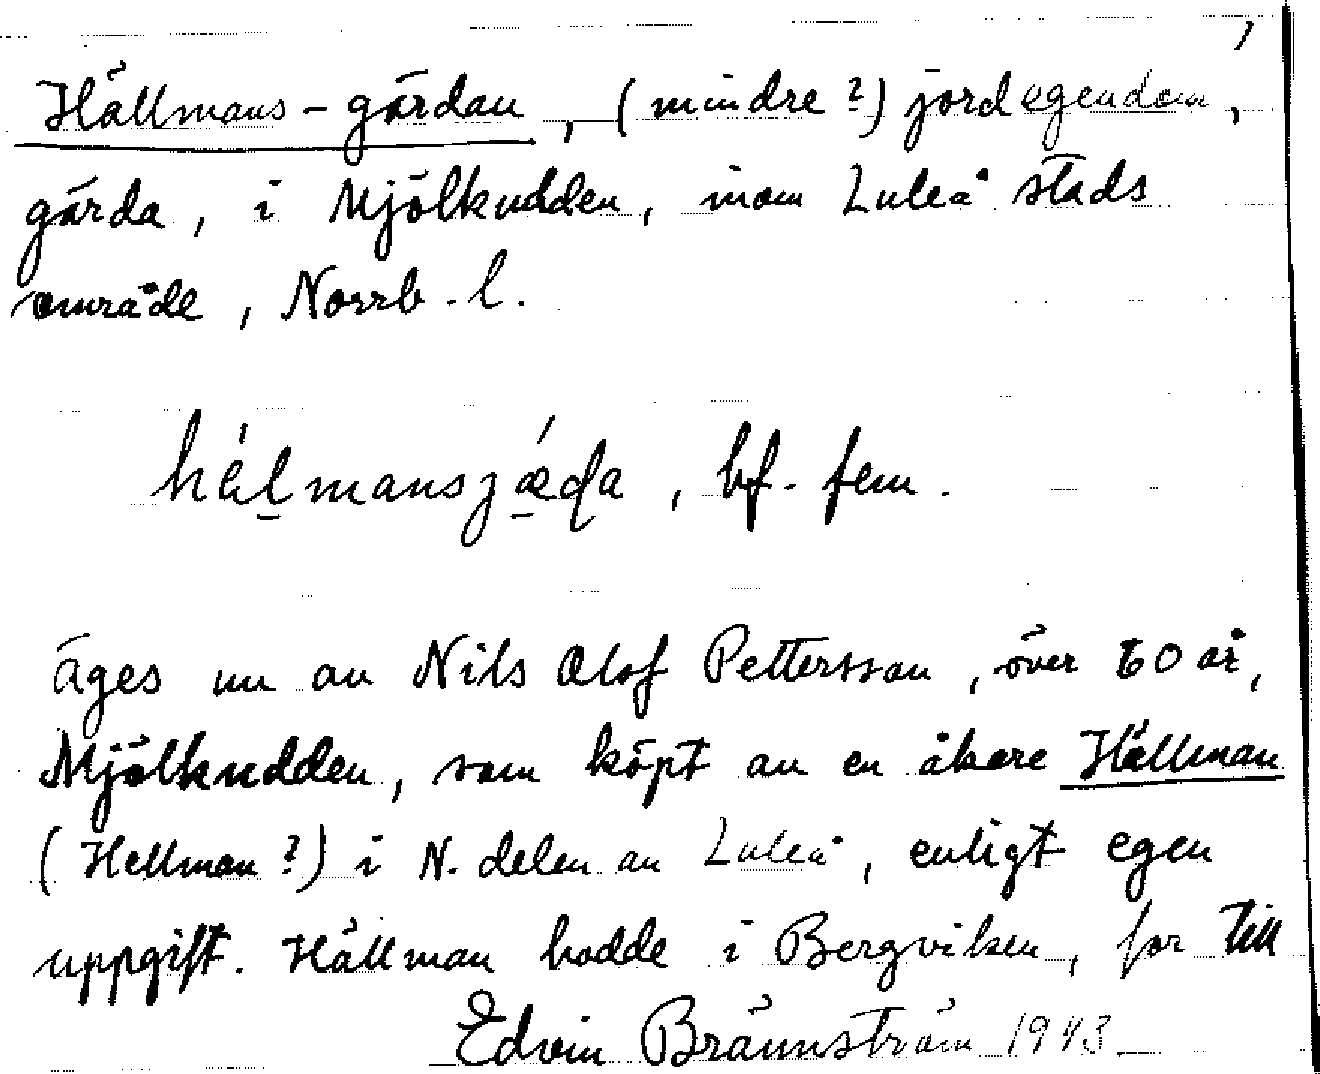 Hällmans-gärdan, (mindre?) jordegendom,
gärda, i Mjölkudden, inom Luleå stads
område, Norrb. l.
hèḻmansʒǽ̱ɖa, bf. fem.
Äges nu av Nils Olof Pettersson, över 60 år,
Mjölkudden, som köpt av en åkare Hällman
(Hellman?) i N. delen av Luleå, enligt egen
uppgift. Hällman bodde i Bergviken, for till
Edvin Brännström 1943